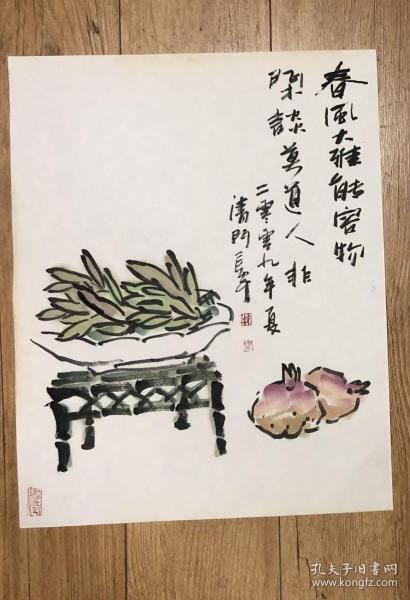 春风大雅能容物
闲谈莫道人非
二零零九年夏
清门
孔夫子旧书网
www.kongfz.com